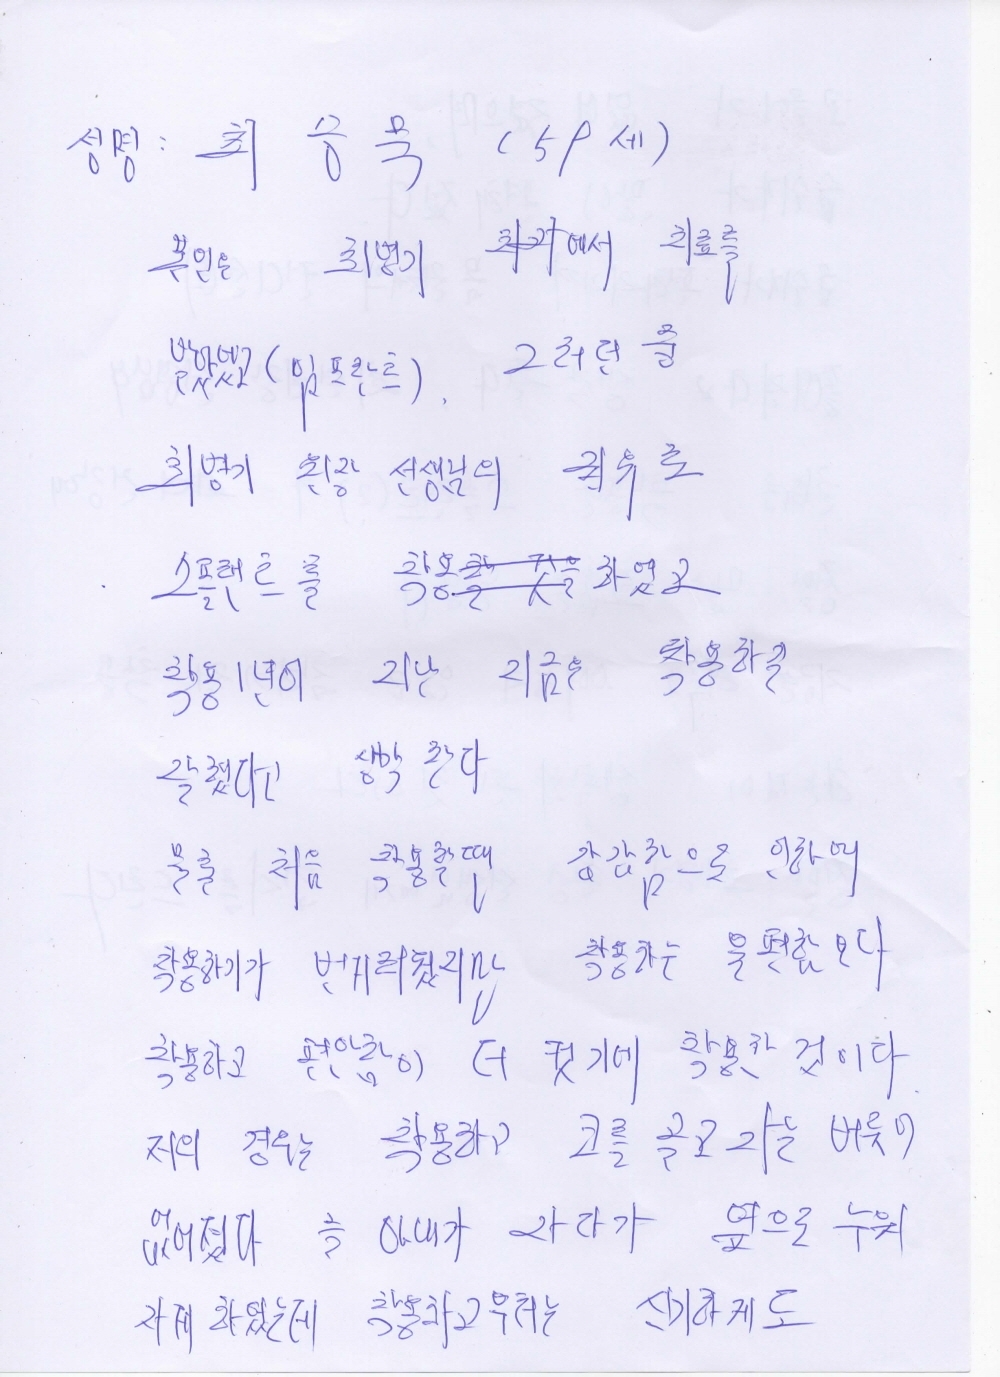 성명 : 최 응 묵 (59세)
본인은 최병기 치과에서 치료를
받았었고 (임프란트). 그러던 중
최병기 원장 선생님의 권유로
스플랜트를 착용할 것을 하였고
착용 1년이 지난 지금은 착용하길
잘했다고 생각한다
물론 처음 착용할때 갑갑함으로 인하여
착용하기가 번거러웠지만 착용하는 불편함보다
착용하고 편안함이 더 컷기에 착용한 것이다
저의 경우는 착용하고 코를 골고 자는 버릇이
없어졌다 즉 아내가 자다가 옆으로 누워
자게 하였는데 착용하고부터는 신기하게도